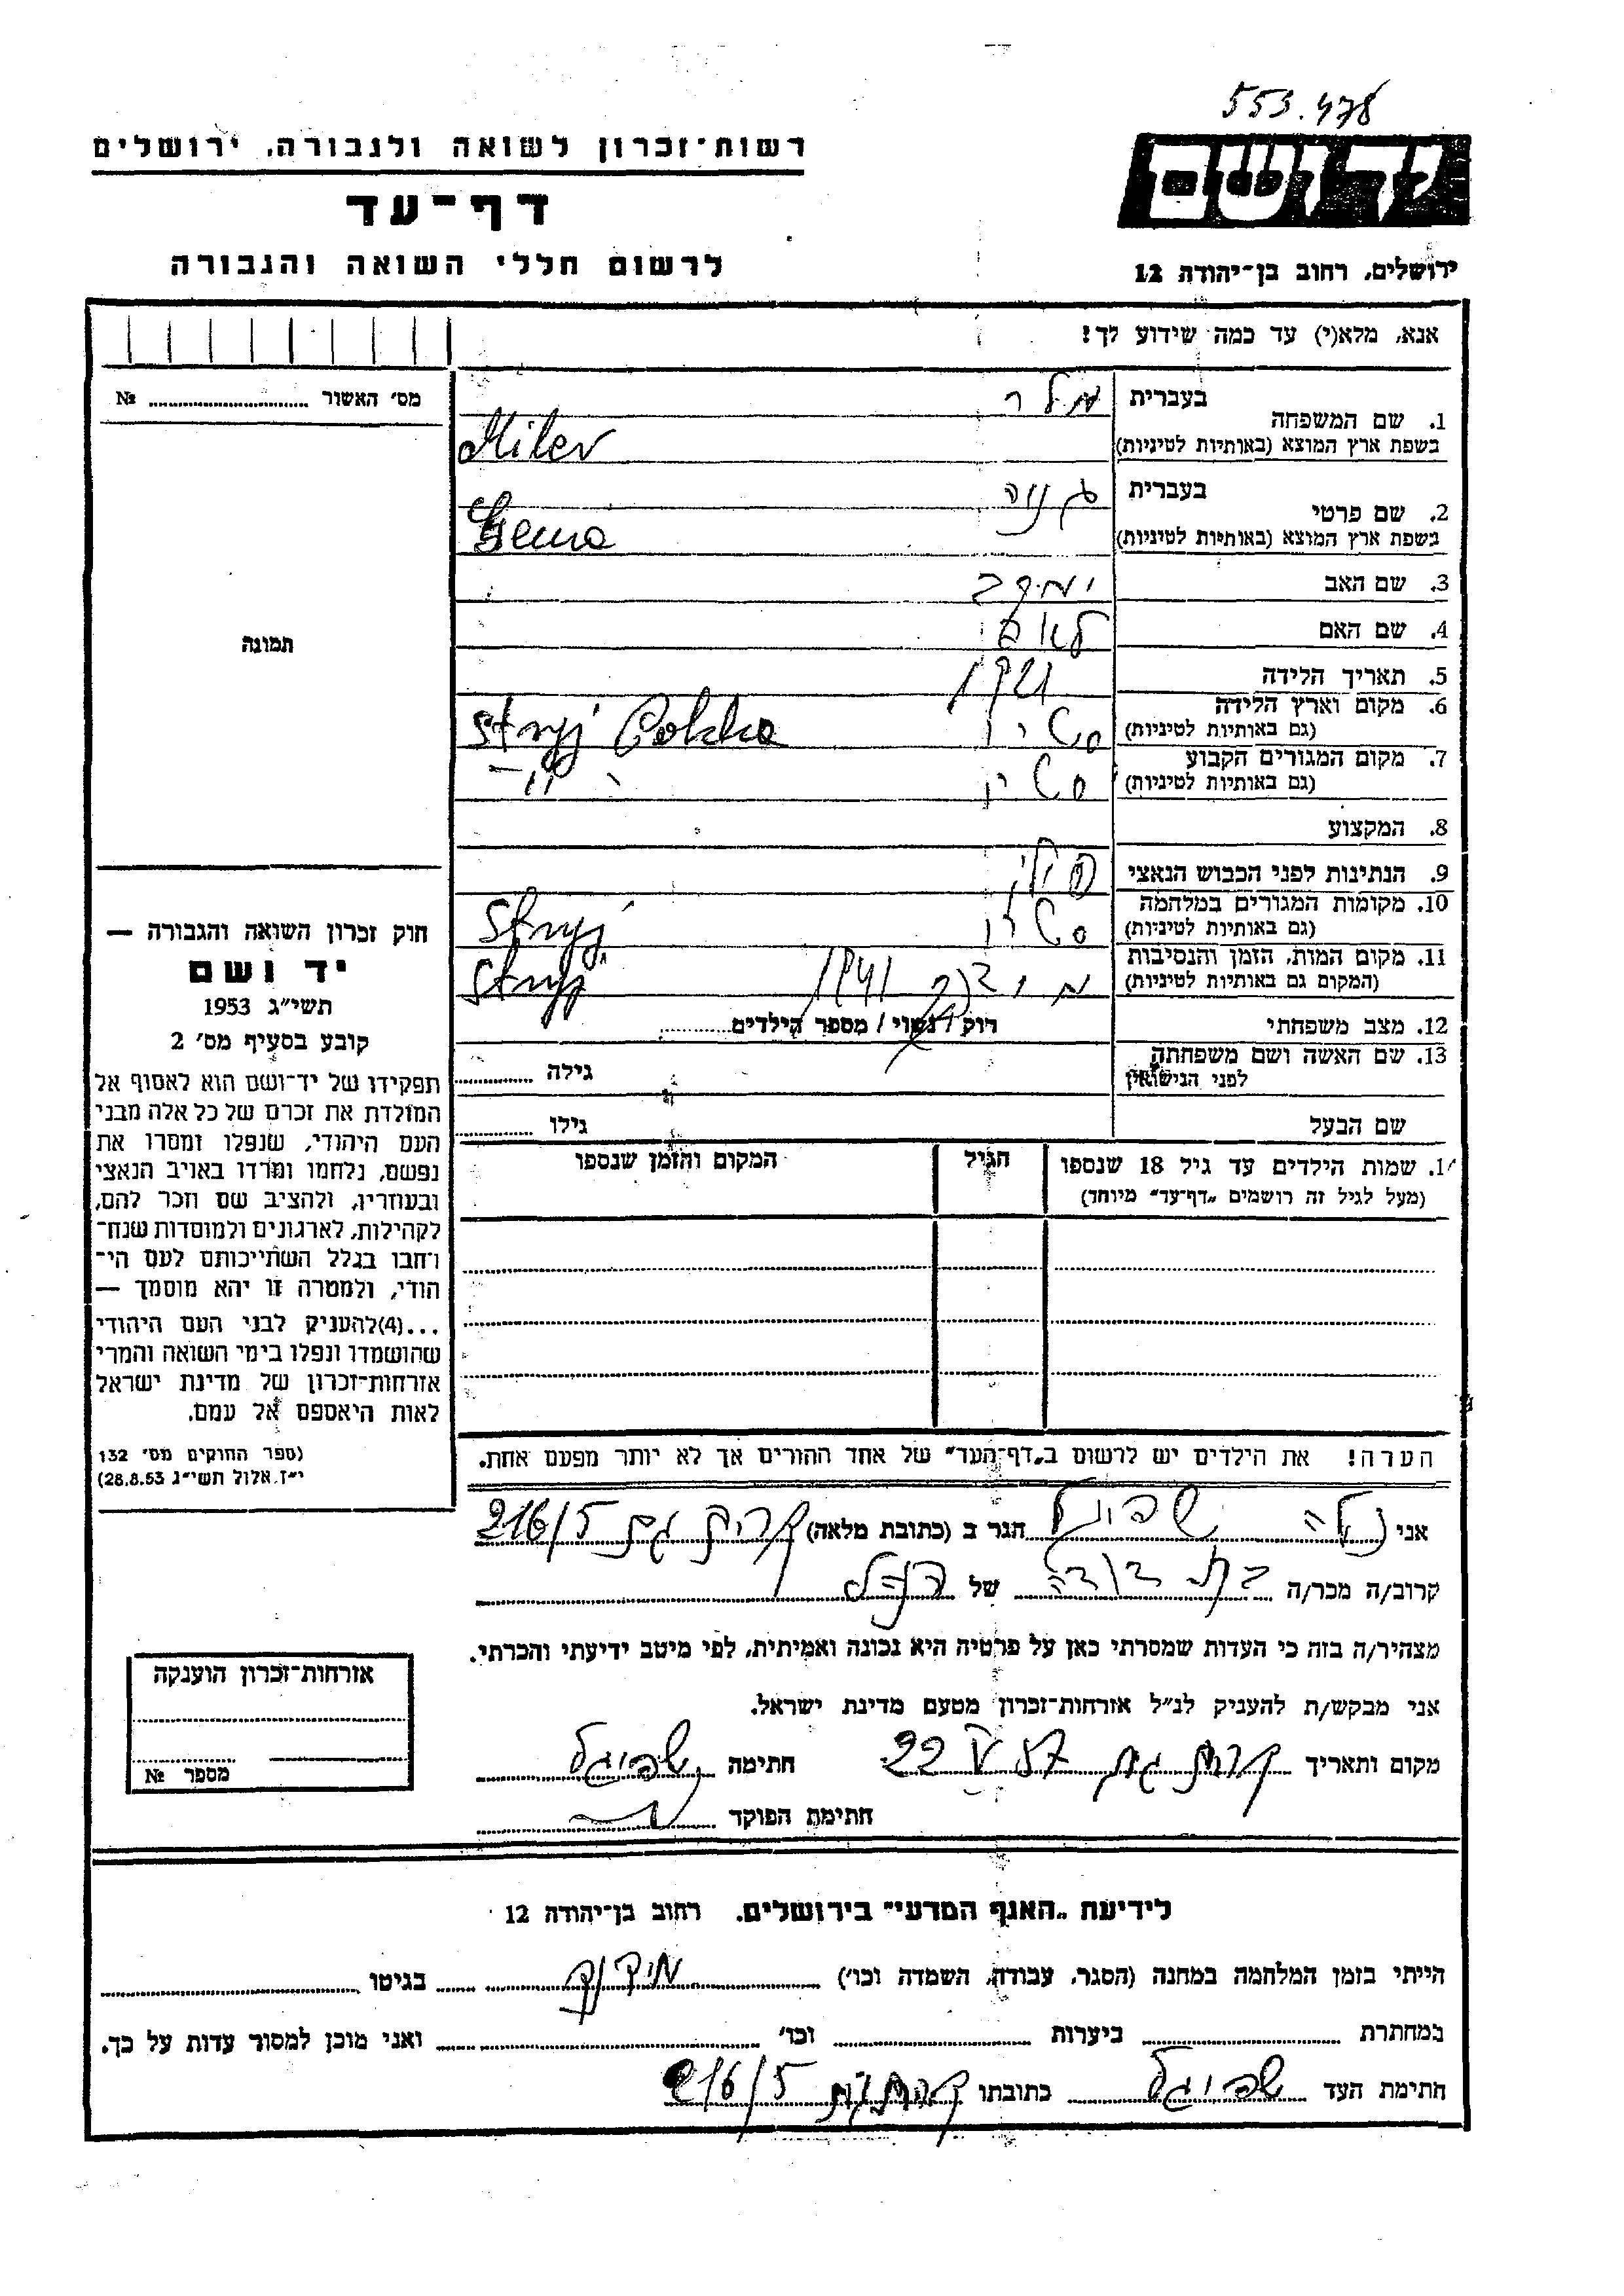 553.478
יד ושם
רשות־זכרון לשואה ולגבורה, ירושלים
דף־עד
לרשום חללי השואה והגבורה
ירושלים, רחוב בן־יהודה 12
אנא, מלא(י) עד כמה שידוע לך!
מס׳ האשור № 
תמונה
1. שם המשפחה
בעברית מלר
בשפת ארץ המוצא (באותיות לטיניות) Miler
2. שם פרטי
בעברית גנוה
בשפת ארץ המוצא (באותיות לטיניות) Genia
3. שם האב
4. שם האם
5. תאריך הלידה 1921
6. מקום וארץ הלידה
(גם באותיות לטיניות) סטרי Stryj Polska
7. מקום המגורים הקבוע
(גם באותיות לטיניות) סטרי –"–
8. המקצוע
9. הנתינות לפני הכבוש הנאצי פולני
10. מקומות המגורים במלחמה
(גם באותיות לטיניות) סטרי Stryj
11. מקום המות, הזמן והנסיבות
(המקום גם באותיות לטיניות) 1941 Stryj
12. מצב משפחתי רוק / נשוי / מספר הילדים
13. שם האשה ושם משפחתה
לפני הנישואין גילה
שם הבעל גילו
14. שמות הילדים עד גיל 18 שנספו
(מעל לגיל זה רושמים „דף־עד״ מיוחד)
הגיל
המקום והזמן שנספו
הערה! את הילדים יש לרשום ב„דף־העד״ של אחד ההורים אך לא יותר מפעם אחת.
חוק זכרון השואה והגבורה —
יד ושם
תשי״ג 1953
קובע בסעיף מס׳ 2
תפקידו של יד־ושם הוא לאסוף אל
המולדת את זכרם של כל אלה מבני
העם היהודי, שנפלו ומסרו את
נפשם, נלחמו ומרדו באויב הנאצי
ובעוזריו, ולהציב שם וזכר להם,
לקהילות, לארגונים ולמוסדות שנח־
רבו בגלל השתייכותם לעם הי־
הודי, ולמטרה זו יהא מוסמך —
...(4)להעניק לבני העם היהודי
שהושמדו ונפלו בימי השואה והמרי
אזרחות־זכרון של מדינת ישראל
לאות היאספם אל עמם.
(ספר החוקים מס׳ 132
י״ז. אלול תשי״ג 28.8.53)
אני שפיגל הגר ב (כתובת מלאה) קרית גת 216/5
קרוב/ה מכר/ה בת דודה של הנ״ל
מצהיר/ה בזה כי העדות שמסרתי כאן על פרטיה היא נכונה ואמיתית, לפי מיטב ידיעתי והכרתי.
אני מבקש/ת להעניק לנ״ל אזרחות־זכרון מטעם מדינת ישראל.
מקום ותאריך קרית גת 22 V 57 חתימה שפיגל
חתימת הפוקד
אזרחות־זכרון הוענקה
מספר №
לידיעת „האגף המדעי״ בירושלים. רחוב בן־יהודה 12
הייתי בזמן המלחמה במחנה (הסגר, עבודה, השמדה וכו׳) בגיטו
במחתרת ביערות וכו׳ ואני מוכן למסור עדות על כך.
חתימת העד שפיגל כתובתו קרית גת 216/5